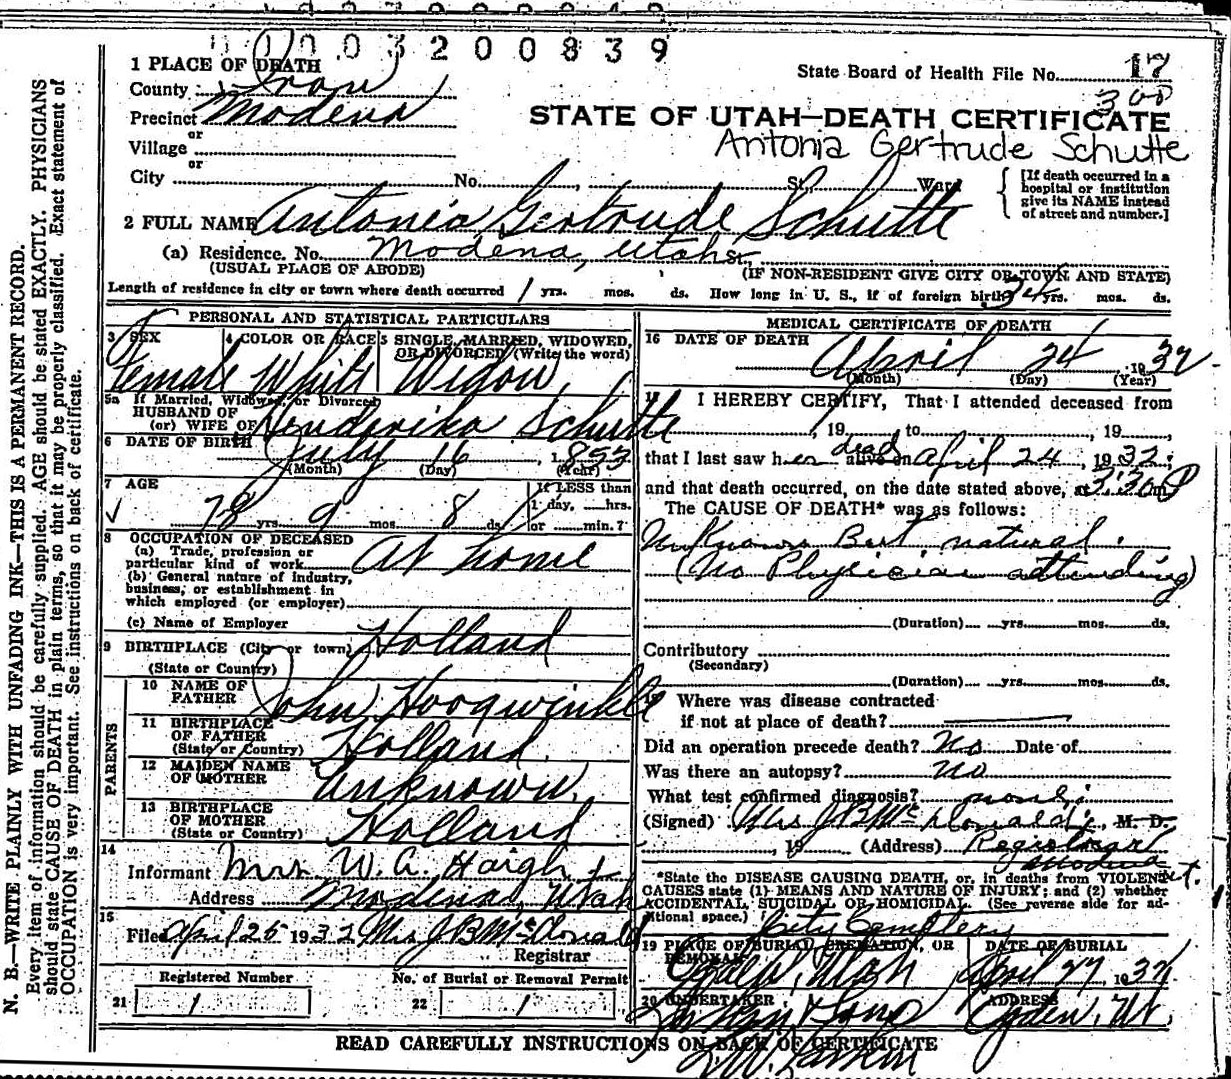 0 3 2 0 0 8 3 9
1 PLACE OF DEATH
State Board of Health File No. 17
300
County Iron
Precinct Modena
STATE OF UTAH—DEATH CERTIFICATE
Antonia Gertrude Schutte
or
Village
or
City No. , St., Ward
[If death occurred in a hospital or institution give its NAME instead of street and number.]
2 FULL NAME Antonia Gertrude Schutte
(a) Residence. No. Modena, Utah St.
(USUAL PLACE OF ABODE) (IF NON-RESIDENT GIVE CITY OR TOWN AND STATE)
Length of residence in city or town where death occurred 1 yrs. mos. ds. How long in U. S., if of foreign birth? 34 yrs. mos. ds.
PERSONAL AND STATISTICAL PARTICULARS
3 SEX 4 COLOR OR RACE 5 SINGLE, MARRIED, WIDOWED, OR DIVORCED (Write the word)
Female White Widow
5a If Married, Widowed, or Divorced
HUSBAND OF
(or) WIFE OF Henderika Schutte
6 DATE OF BIRTH July 16, 1853
(Month) (Day) (Year)
7 AGE
78 yrs. 9 mos. 8 ds.
If LESS than 1 day, hrs. or min.?
8 OCCUPATION OF DECEASED
(a) Trade, profession or particular kind of work At home
(b) General nature of industry, business, or establishment in which employed (or employer)
(c) Name of Employer
9 BIRTHPLACE (City or town) Holland
(State or Country)
PARENTS
10 NAME OF FATHER John Hoogwinkle
11 BIRTHPLACE OF FATHER (State or Country) Holland
12 MAIDEN NAME OF MOTHER Unknown.
13 BIRTHPLACE OF MOTHER (State or Country) Holland
14
Informant Mrs. W. A. Haight
Address Modena, Utah
15
Filed April 25 1932 Mrs J B McDonald
Registrar
Registered Number No. of Burial or Removal Permit
21 1 22 1
MEDICAL CERTIFICATE OF DEATH
16 DATE OF DEATH
April 24 1932
(Month) (Day) (Year)
17 I HEREBY CERTIFY, That I attended deceased from
, 19 to , 19 ,
that I last saw her dead alive on April 24, 1932;
and that death occurred, on the date stated above, at 3:30 P m.
The CAUSE OF DEATH* was as follows:
Unknown But natural.
(No Physician attending)
(Duration) yrs. mos. ds.
Contributory
(Secondary)
(Duration) yrs. mos. ds.
Where was disease contracted
if not at place of death?
Did an operation precede death? No Date of
Was there an autopsy? No
What test confirmed diagnosis? none
(Signed) Mrs J B McDonald, M. D.
, 19 (Address) Registrar
Modena Ut.
*State the DISEASE CAUSING DEATH, or, in deaths from VIOLENT
CAUSES state (1) MEANS AND NATURE OF INJURY; and (2) whether
ACCIDENTAL, SUICIDAL OR HOMICIDAL. (See reverse side for ad-
ditional space.)
City Cemetery
19 PLACE OF BURIAL, CREMATION, OR REMOVAL DATE OF BURIAL
Ogden, Utah April 27 1932
20 UNDERTAKER ADDRESS
Larkin & Sons Ogden, Ut.
READ CAREFULLY INSTRUCTIONS ON BACK OF CERTIFICATE
N. B.—WRITE PLAINLY WITH UNFADING INK—THIS IS A PERMANENT RECORD.
Every item of information should be carefully supplied. AGE should be stated EXACTLY. PHYSICIANS
should state CAUSE OF DEATH in plain terms, so that it may be properly classified. Exact statement of
OCCUPATION is very important. See instructions on back of certificate.